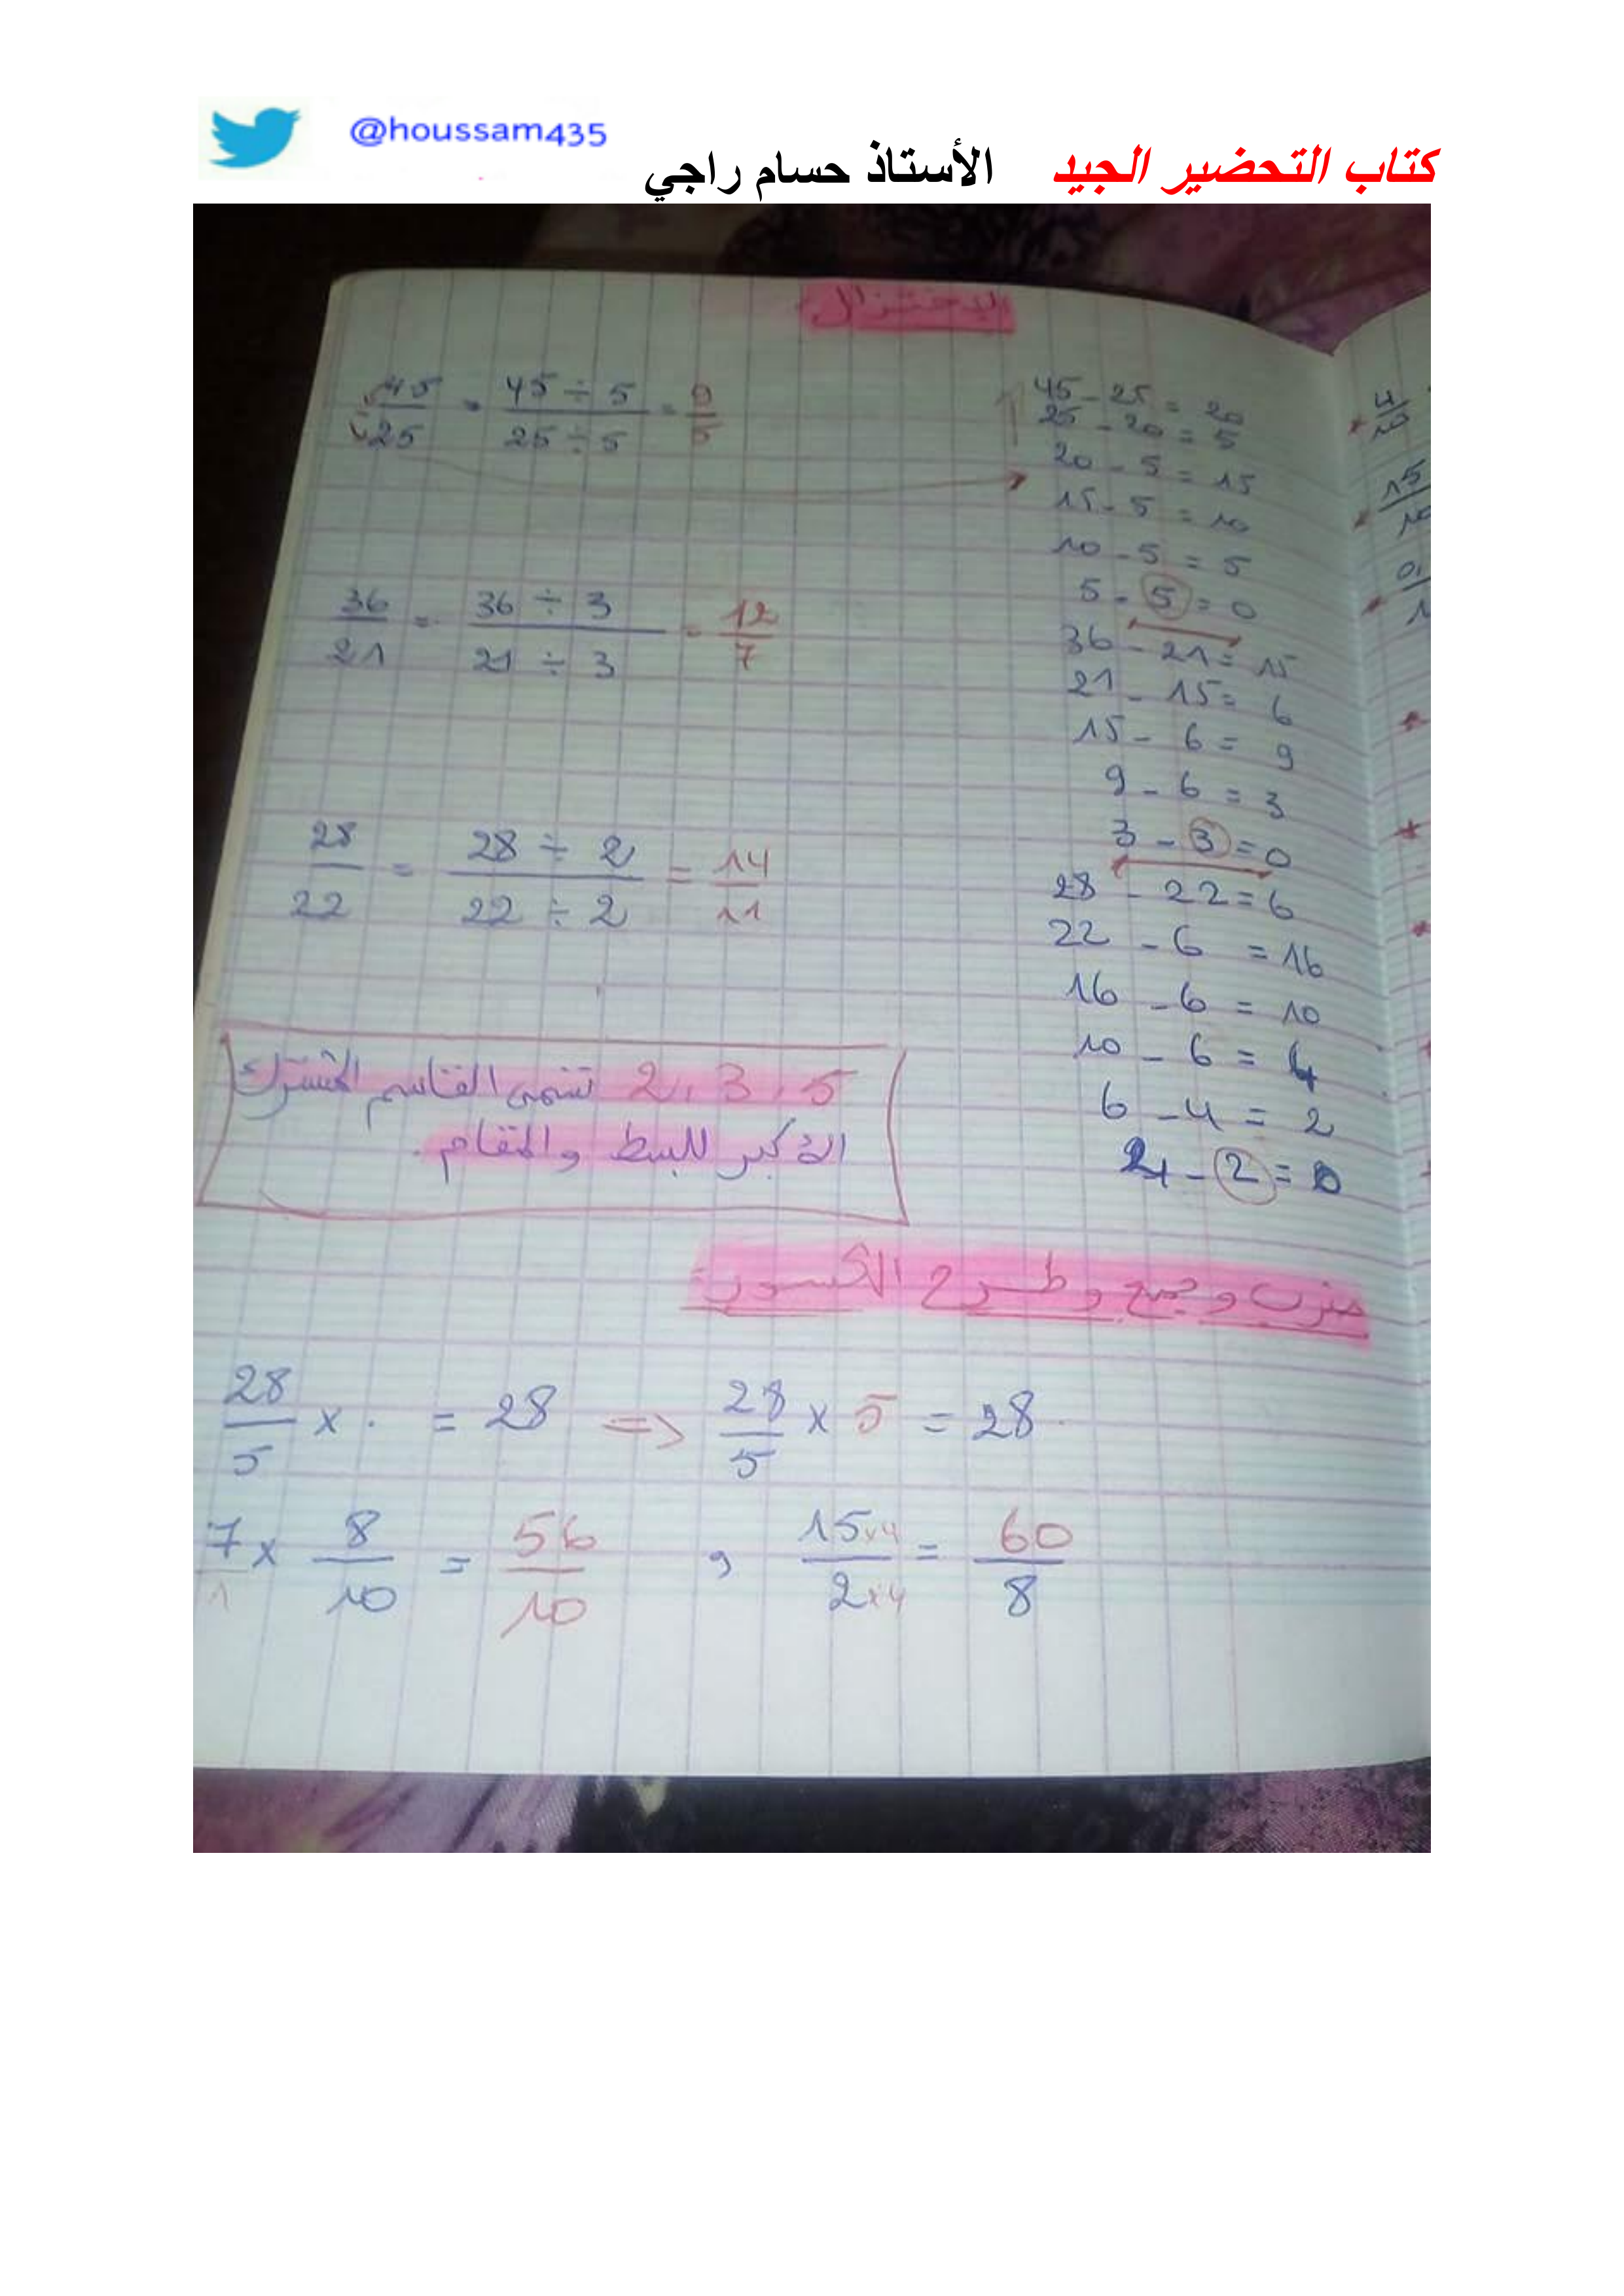 @houssam435
كتاب التحضير الجيد الأستاذ حسام راجي
الاختزال
45/25 = 45 ÷ 5 / 25 ÷ 5 = 9/5
45 - 25 = 20
25 - 20 = 5
20 - 5 = 15
15 - 5 = 10
10 - 5 = 5
5 - 5 = 0
36/21 = 36 ÷ 3 / 21 ÷ 3 = 12/7
36 - 21 = 15
21 - 15 = 6
15 - 6 = 9
9 - 6 = 3
3 - 3 = 0
28/22 = 28 ÷ 2 / 22 ÷ 2 = 14/11
28 - 22 = 6
22 - 6 = 16
16 - 6 = 10
10 - 6 = 4
6 - 4 = 2
2 - 2 = 0
2، 3، 5 تسمى القاسم المشترك
الأكبر للبسط والمقام.
ضرب وجمع وطرح الكسور:
28/5 × . = 28 => 28/5 × 5 = 28
7/1 × 8/10 = 56/10 , 15×4/2×4 = 60/8